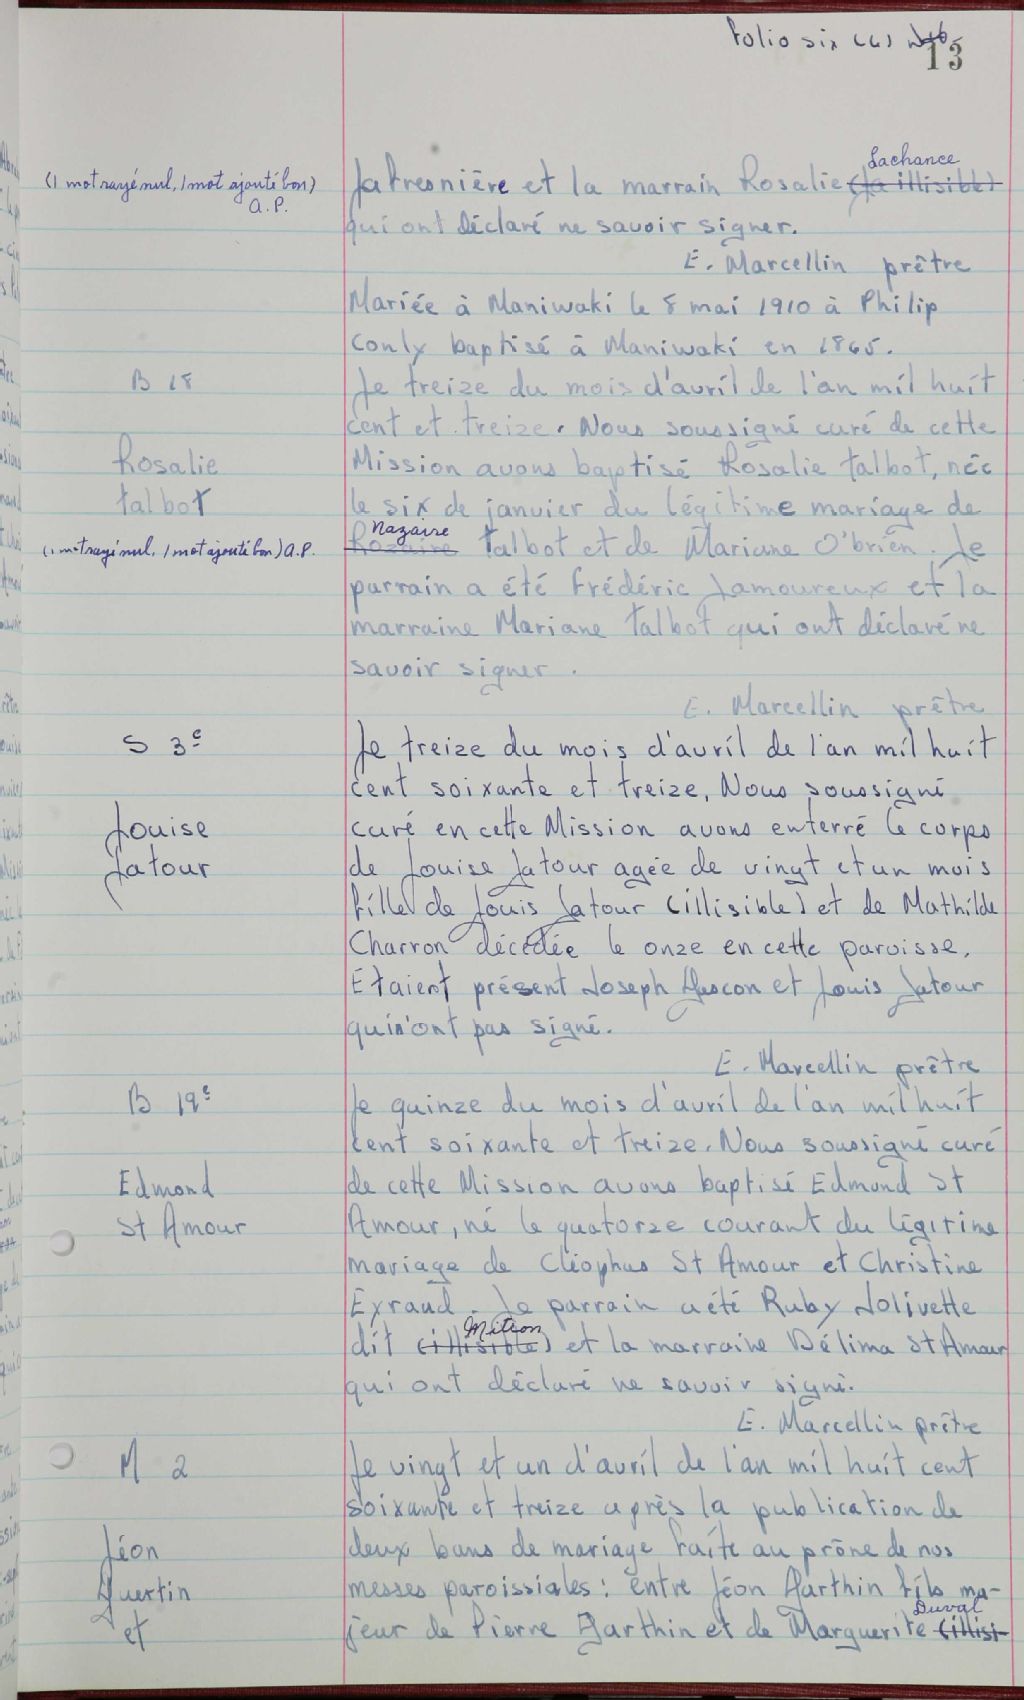 Folio six (6)
13
(1 mot rayé nul, 1 mot ajouté bon)
A.P.
Lachance
Lafresnière et la marrain Rosalie (La illisible)
qui ont déclaré ne savoir signer.
E. Marcellin prêtre
Mariée à Maniwaki le 8 mai 1910 à Philip
Conly baptisé à Maniwaki en 1865.
B 18
Le treize du mois d'avril de l'an mil huit
cent et treize. Nous soussigné curé de cette
Rosalie
Mission avons baptisé Rosalie Talbot, née
Talbot
le six de janvier du légitime mariage de
(1 mot rayé nul, 1 mot ajouté bon) A.P.
Nazaire
Rozaire Talbot et de Mariane O'brien. Le
parrain a été Frédéric Lamoureux et la
marraine Mariane Talbot qui ont déclaré ne
savoir signer.
E. Marcellin prêtre
S 3e
Le treize du mois d'avril de l'an mil huit
cent soixante et treize, Nous soussigné
Louise
curé en cette Mission avons enterré le corps
Latour
de Louise Latour agée de vingt et un mois
fille de Louis Latour (illisible) et de Mathilde
Charron décédée le onze en cette paroisse.
Etaient présent Joseph Gascon et Louis Latour
qui n'ont pas signé.
E. Marcellin prêtre
B 19e
Le quinze du mois d'avril de l'an mil huit
cent soixante et treize. Nous soussigné curé
Edmond
de cette Mission avons baptisé Edmond St
St Amour
Amour, né le quatorze courant du légitime
mariage de Cléophas St Amour et Christine
Eyraud. Le parrain a été Ruby Jolivette
Mitron
dit (illisible) et la marraine Délima St Amour
qui ont déclaré ne savoir signé.
E. Marcellin prêtre
M 2
Le vingt et un d'avril de l'an mil huit cent
soixante et treize après la publication de
Léon
deux bans de mariage faite au prône de nos
Guertin
messes paroissiales: entre Léon Garthin fils ma-
et
Duval
jeur de Pierre Garthin et de Marguerite (illisi-